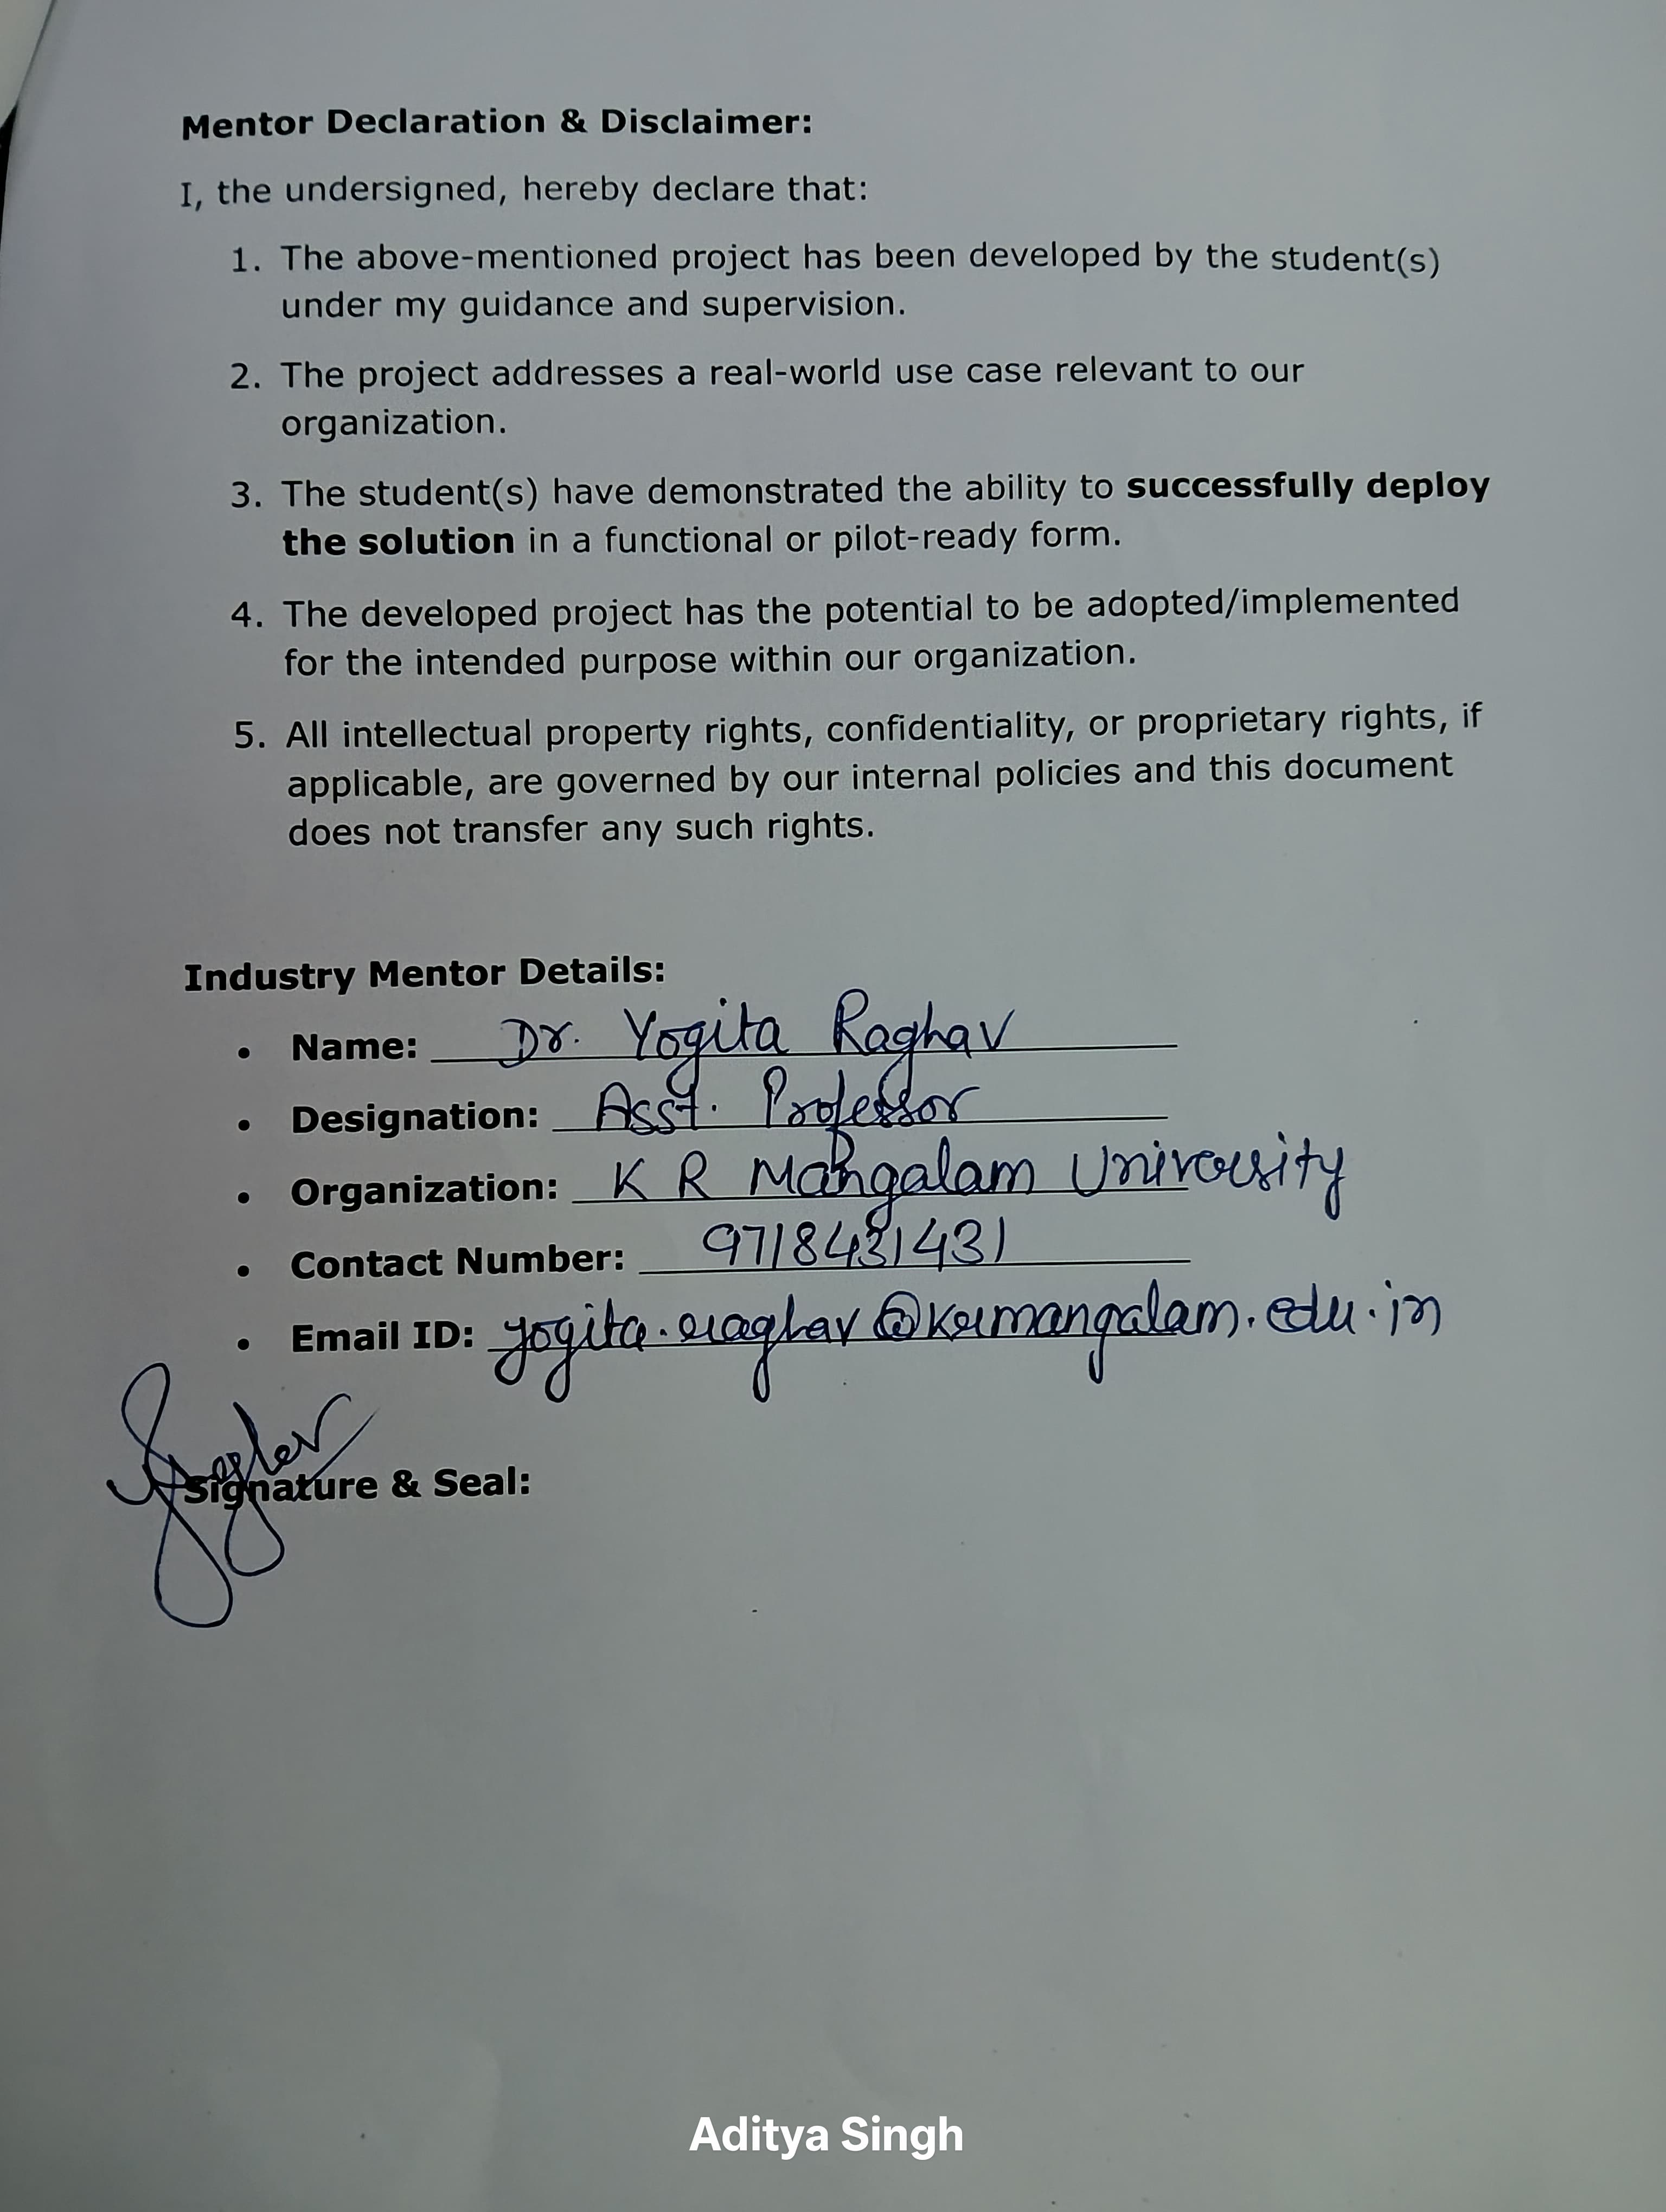 Mentor Declaration & Disclaimer:
I, the undersigned, hereby declare that:
1. The above-mentioned project has been developed by the student(s)
under my guidance and supervision.
2. The project addresses a real-world use case relevant to our
organization.
3. The student(s) have demonstrated the ability to successfully deploy
the solution in a functional or pilot-ready form.
4. The developed project has the potential to be adopted/implemented
for the intended purpose within our organization.
5. All intellectual property rights, confidentiality, or proprietary rights, if
applicable, are governed by our internal policies and this document
does not transfer any such rights.
Industry Mentor Details:
• Name: Dr. Yogita Raghav
• Designation: Asst. Professor
• Organization: K R Mangalam University
• Contact Number: 9718431431
• Email ID: yogita.raghav@krmangalam.edu.in
Signature & Seal:
Aditya Singh